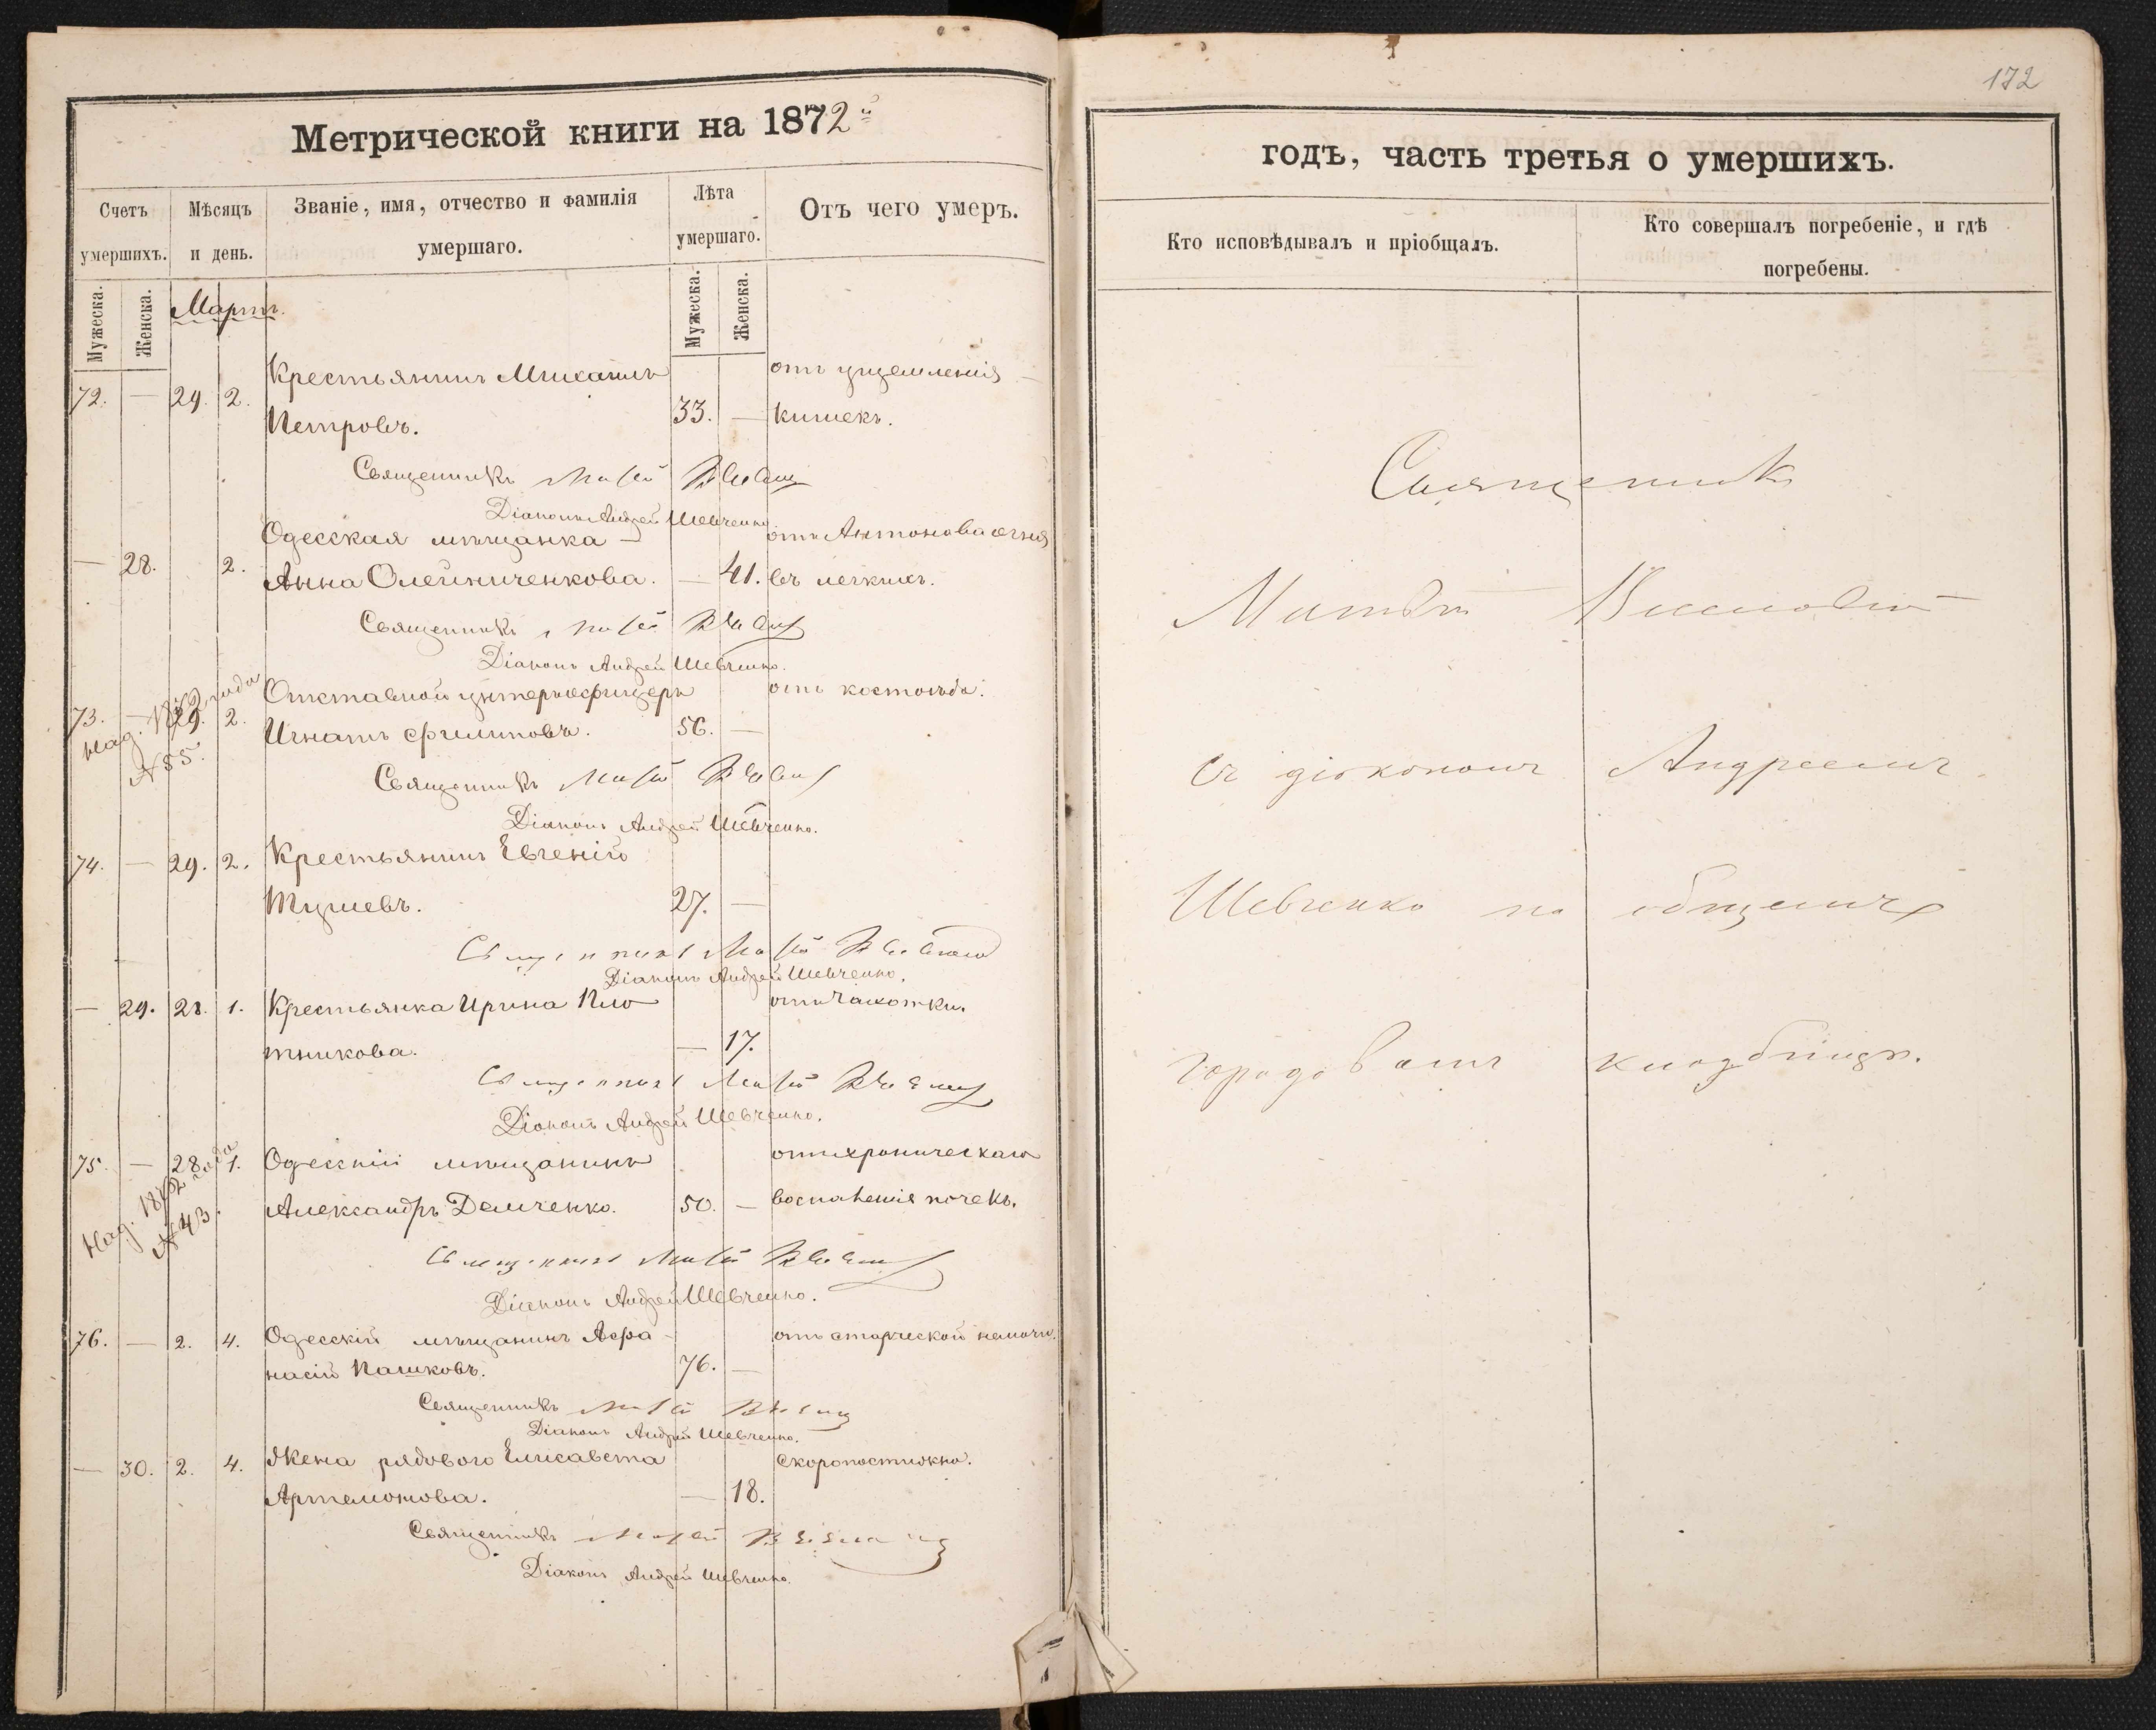 Метрической книги на 1872й
Счетъ умершихъ.
Мѣсяцъ и день.
Званіе, имя, отчество и фамилія умершаго.
Лѣта умершаго.
Отъ чего умеръ.
Мужеска.
Женска.
Мартъ.
Мужеска.
Женска.
Крестьянинъ Михаилъ отъ ущемленія
72. — 29. 2.
Петровъ. 33. — кишекъ.
Священникъ
Діаконъ Андрей Шевченко
Одесская мѣщанка — отъ Антонова огня
— 28. 2. Анна Олейниченкова. — 41. въ легкихъ.
Священникъ
Діаконъ Андрей Шевченко.
Отставной унтеръ офицеръ отъ костоѣда.
73. — 29. 2. Игнатъ Филиповъ. 56. —
1872 года
№ 55.
Священникъ
Діаконъ Андрей Шевченко.
74. — 29. 2. Крестьянинъ Евгеній
27. —
Священникъ
Діаконъ Андрей Шевченко.
— 29. 28. 1. Крестьянка Ирина Пло отъ чахотки.
тникова. — 17.
Священникъ
Діаконъ Андрей Шевченко.
75. — 28. 1. Одесскій мѣщанинъ отъ хроническаго
Александръ Демченко. 50. — воспаленія почекъ.
1872 года
№ 43.
Священникъ
Діаконъ Андрей Шевченко.
76. — 2. 4. Одесскій мѣщанинъ Афа- отъ старческой немочи.
насій Пашковъ. 76. —
Священникъ
Діаконъ Андрей Шевченко.
— 30. 2. 4. Жена рядового Елисавета скоропостижно.
Артамонова. — 18.
Священникъ
Діаконъ Андрей Шевченко.
172
годъ, часть третья о умершихъ.
Кто исповѣдывалъ и пріобщалъ.
Кто совершалъ погребеніе, и гдѣ погребены.
Священникъ
Матвѣй
съ діакономъ Андреемъ
Шевченко на общемъ
городовомъ кладбищѣ.